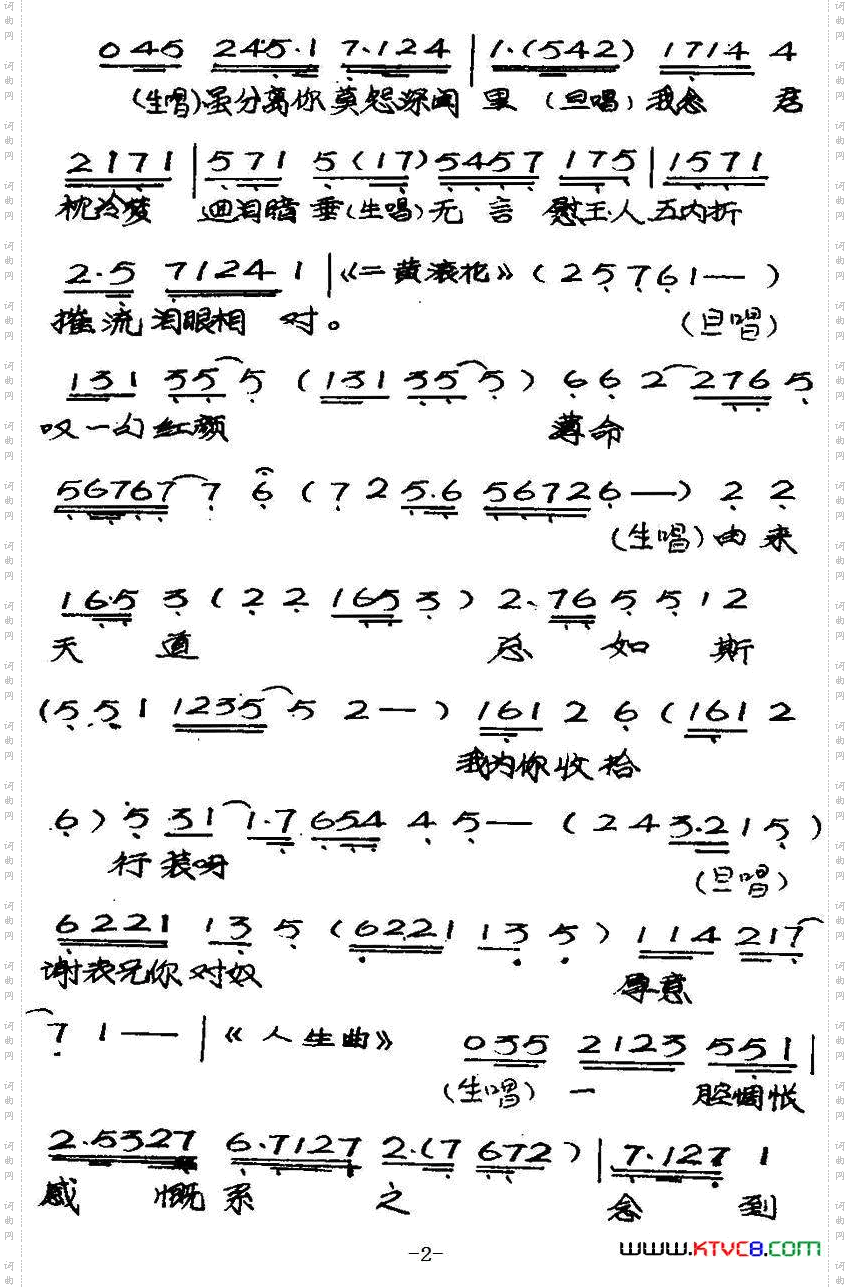 0 4 5 2 4 5 · 1 7 · 1 2 4 | 1 · ( 5 4 2 ) 1 7 1 4 4
(生唱)虽分离你莫怨深闺里 (旦唱)我念 君
2 1 7 1 | 5 7 1 5 ( 1 7 ) 5 4 5 7 1 7 5 | 1 5 7 1
枕冷梦 迴泪暗垂(生唱)无言 慰玉人五内折
2 · 5 7 1 2 4 1 | 《二黄滚花》 ( 2 5 7 6 1 — — )
摧流泪眼相 对。 (旦唱)
1 3 1 3 5 5 ( 1 3 1 3 5 5 ) 6 6 2 2 7 6 5
叹一句红颜 薄命
5 6 7 6 7 7 6 ( 7 2 5 · 6 5 6 7 2 6 — ) 2 2
(生唱)由来
1 6 · 5 3 ( 2 2 1 6 5 3 ) 2 · 7 6 5 5 1 2
天 道 总 如 斯
( 5 5 1 1 2 3 5 5 2 — ) 1 6 1 2 6 ( 1 6 1 2
我为你收拾
6 ) 5 3 1 1 · 7 6 5 4 4 5 — ( 2 4 3 · 2 1 5 )
行装呀 (旦唱)
6 2 2 1 1 3 5 ( 6 2 2 1 1 3 5 ) 1 1 4 2 1 7
谢表兄你对奴 厚意
7 1 — — | 《人生曲》 0 3 5 2 1 2 3 5 5 1 |
(生唱) 一 腔惆怅
2 · 5 3 2 7 6 · 7 1 2 7 2 · ( 7 6 7 2 ) | 7 · 1 2 7 1
感 慨系 之 念 到
-2-
www.KTVC8.com